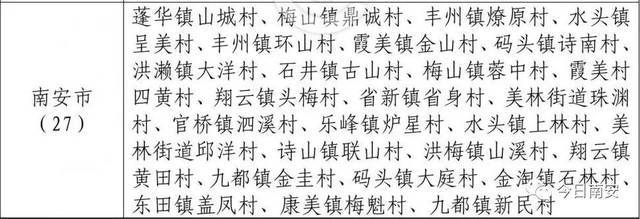 南安市
(27)
蓬华镇山城村、梅山镇鼎诚村、丰州镇燎原村、水头镇
呈美村、丰州镇环山村、霞美镇金山村、码头镇诗南村、
洪濑镇大洋村、石井镇古山村、梅山镇蓉中村、霞美村
四黄村、翔云镇头梅村、省新镇省身村、美林街道珠渊
村、官桥镇泗溪村、乐峰镇炉星村、水头镇上林村、美
林街道邱洋村、诗山镇联山村、洪梅镇山溪村、翔云镇
黄田村、九都镇金圭村、码头镇大庭村、金淘镇石林村、
东田镇盖凤村、康美镇梅魁村、九都镇新民村
今日南安